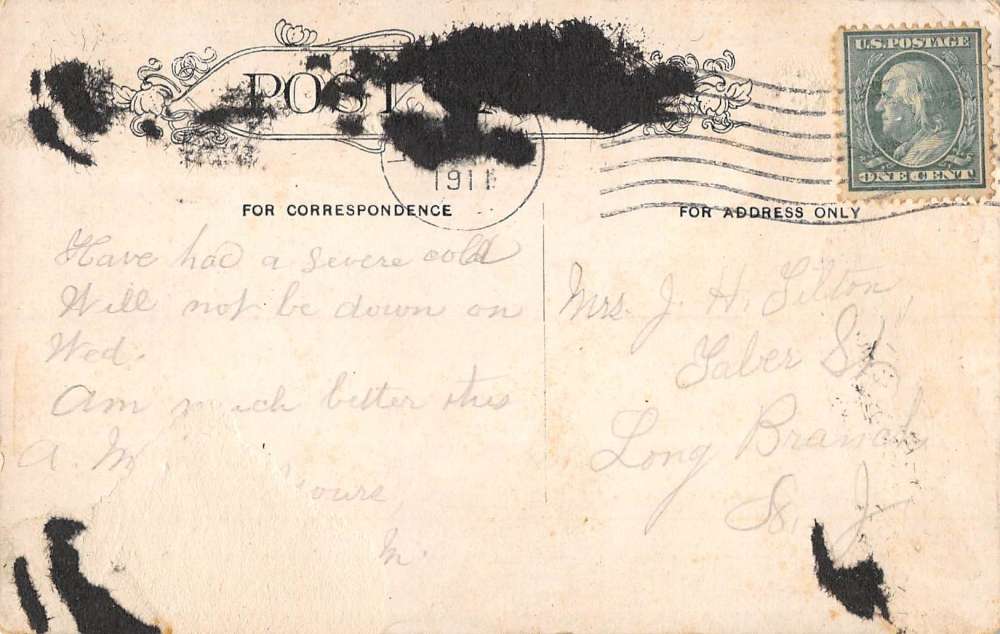 POST
U.S. POSTAGE
ONE CENT
1911
FOR CORRESPONDENCE
FOR ADDRESS ONLY
Have had a severe cold
Will not be down on
Wed.
Am much better this
A. M.
Yours,
M.
Mrs. J. H. Tilton,
Taber St.
Long Branch
N. J.